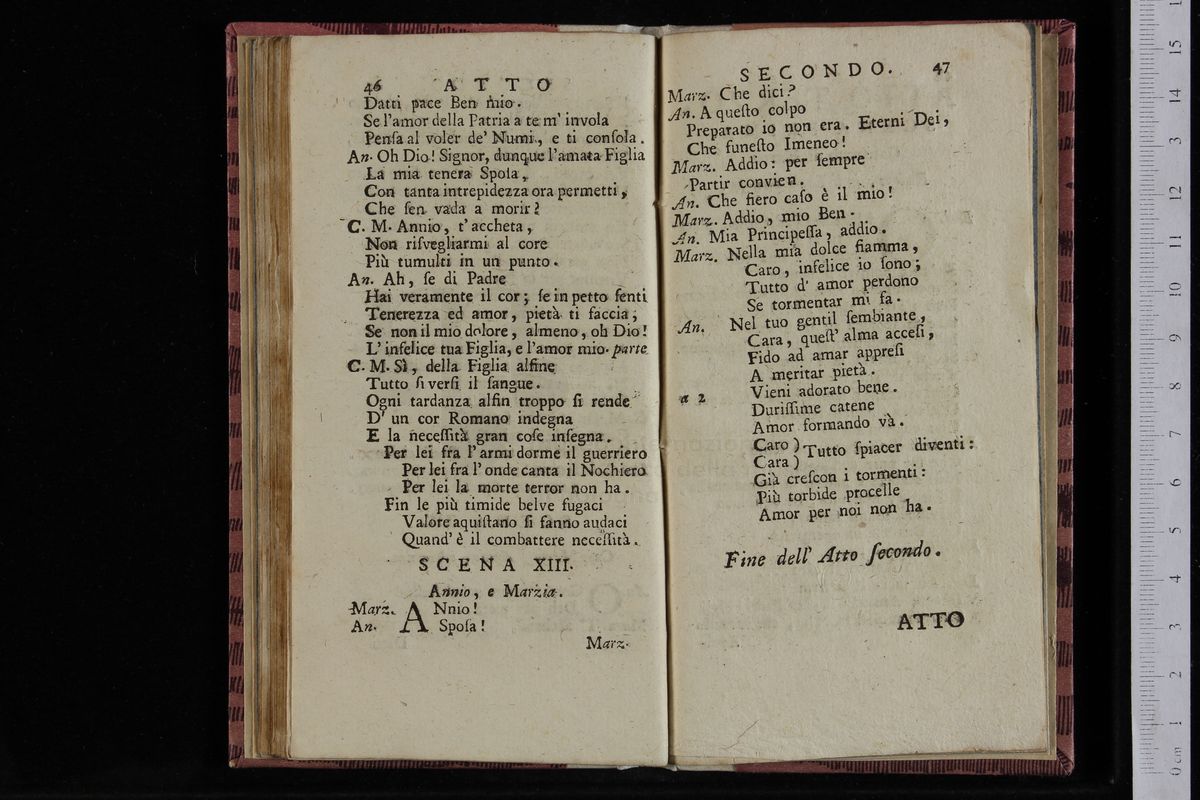 46 ATTO
Datti pace Ben mio.
Se l'amor della Patria a te m' invola
Penſa al voler de' Numi, e ti conſola.
An. Oh Dio! Signor, dunque l'amata Figlia
La mia tenera Spoſa,
Con tanta intrepidezza ora permetti,
Che ſen vada a morir?
C. M. Annio, t'accheta,
Non riſvegliarmi al core
Più tumulti in un punto.
An. Ah, ſe di Padre
Hai veramente il cor; ſe in petto ſenti
Tenerezza ed amor, pietà ti faccia;
Se non il mio dolore, almeno, oh Dio!
L' infelice tua Figlia, e l'amor mio. parte
C. M. Sì, della Figlia alfine
Tutto ſi verſi il ſangue.
Ogni tardanza alfin troppo ſi rende
D' un cor Romano indegna
E la neceſſità gran coſe inſegna.
Per lei fra l' armi dorme il guerriero
Per lei fra l' onde canta il Nochiero
Per lei la morte terror non ha.
Fin le più timide belve fugaci
Valore aquiſtano ſi fanno audaci
Quand' è il combattere neceſſità.
SCENA XIII.
Annio, e Marzia.
Marz. ANnio!
An. Spoſa!
Marz.
SECONDO. 47
Marz. Che dici?
An. A queſto colpo
Preparato io non era. Eterni Dei,
Che funeſto Imeneo!
Marz. Addio: per ſempre
Partir convien.
An. Che fiero caſo è il mio!
Marz. Addio, mio Ben.
An. Mia Principeſſa, addio.
Marz. Nella mia dolce fiamma,
Caro, infelice io ſono;
Tutto d' amor perdono
Se tormentar mi fa.
An. Nel tuo gentil ſembiante,
Cara, queſt' alma acceſi,
Fido ad amar appreſi
A meritar pietà.
a 2 Vieni adorato bene.
Duriſſime catene
Amor formando và.
Caro ) Tutto ſpiacer diventi:
Cara )
Già creſcon i tormenti:
Più torbide procelle
Amor per noi non ha.
Fine dell' Atto ſecondo.
ATTO